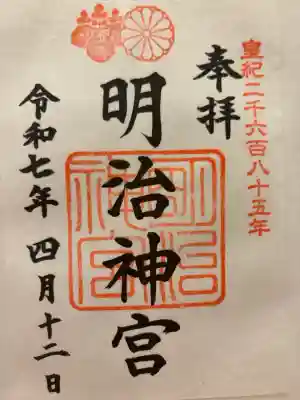 皇紀二千六百八十五年
奉拝
明治神宮
明治神宮
令和七年 四月十二日